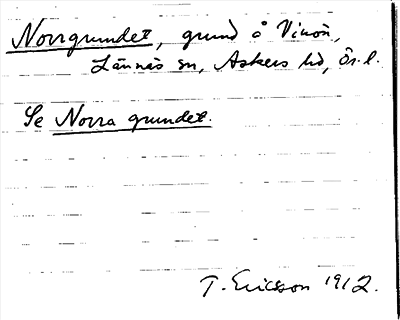 Norrgrundet, grund å Vinön,
Lännäs sn, Askers hd, Ör. l.
Se Norra grundet.
T. Ericsson 1912.